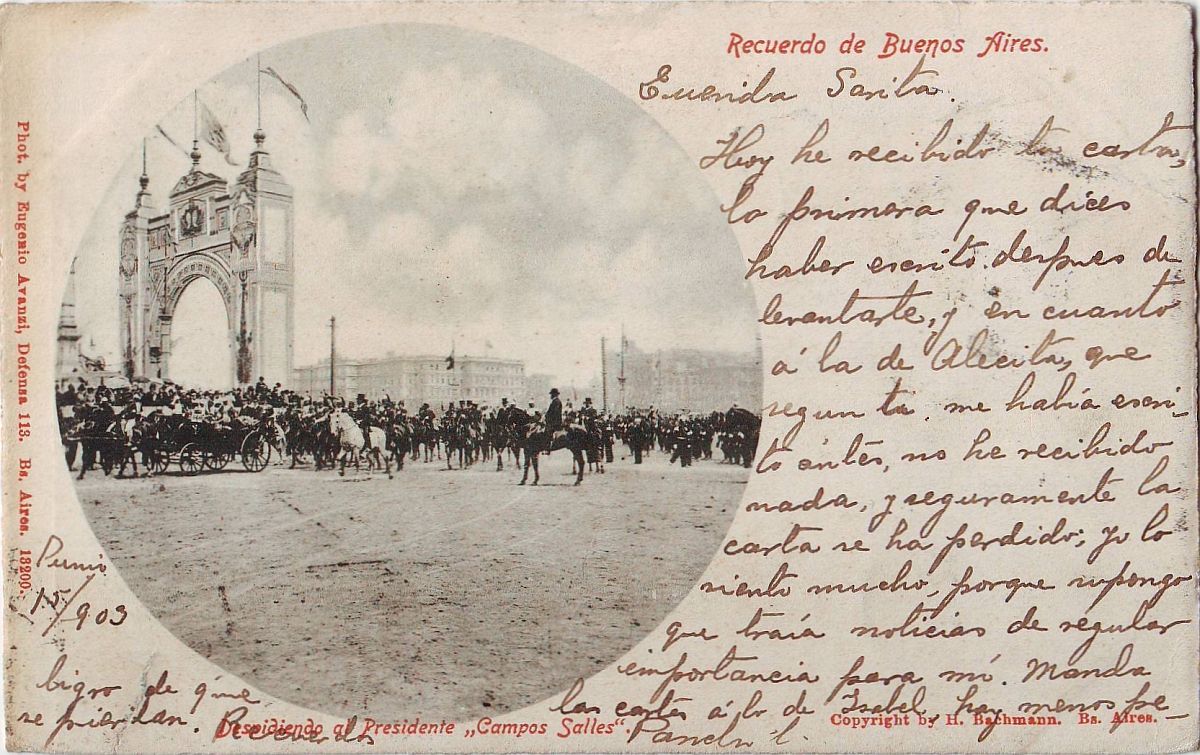 Recuerdo de Buenos Aires.
Querida Sarita.
Hoy he recibido tu carta,
la primera que dices
haber escrito despues de
levantarte, y en cuanto
á la de Alecita, que
segun tu me había escri-
to ántes, no he recibido
nada, y seguramente la
carta se ha perdido; yo lo
siento mucho, porque supongo
que traía noticias de regular
importancia para mí. Manda
las cartas á lo de Isabel, hay menos pe-
ligro de que
se pierdan. Recuerdos
Junio
15/903
Despidiendo al Presidente „Campos Salles".
Copyright by H. Bachmann. Bs. Aires.
Phot. by Eugenio Avanzi, Defensa 113. Bs. Aires. 13200.